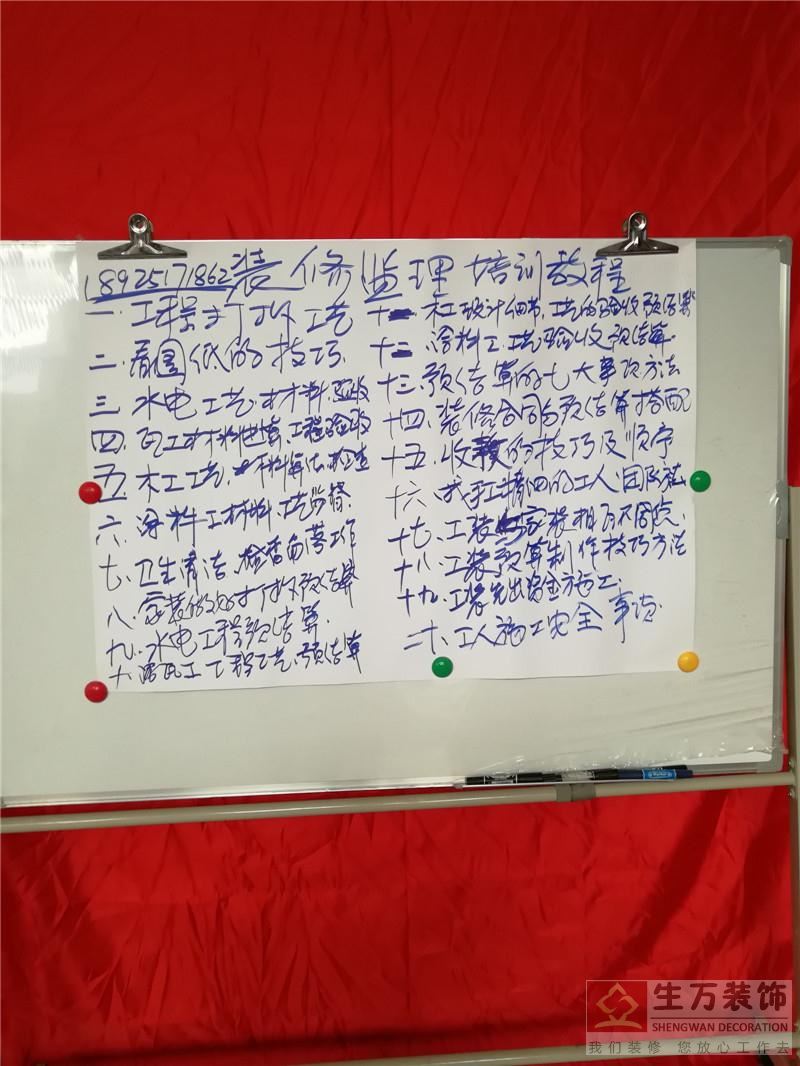 18925171862装修监理培训教程
一.工程打扮工艺
二.看图低的技巧
三.水电工艺材料验收
四.瓦工材料 工程验收
五木工工艺、材料算法
六.涂料工材料、工艺
七.卫生清洁、检查
八.家装的 预结算
九.水电工程预结算
十.瓦工工程工艺、预结算
十一 木工设计细节、工艺的验收预结算
十二 涂料工.工艺验收预结算
十三.预结算的七大事项方法
十四、装修合同与预结算搭配
十五、收款的技巧及顺序
十六、找 的工人、团队
十七、工装与家装相互不同点.
十八、工装预算制作技巧方法
十九、工装先出资金施工.
二十.工人施工安全事项
生万装饰
SHENGWAN DECORATION
我们装修 您放心工作去